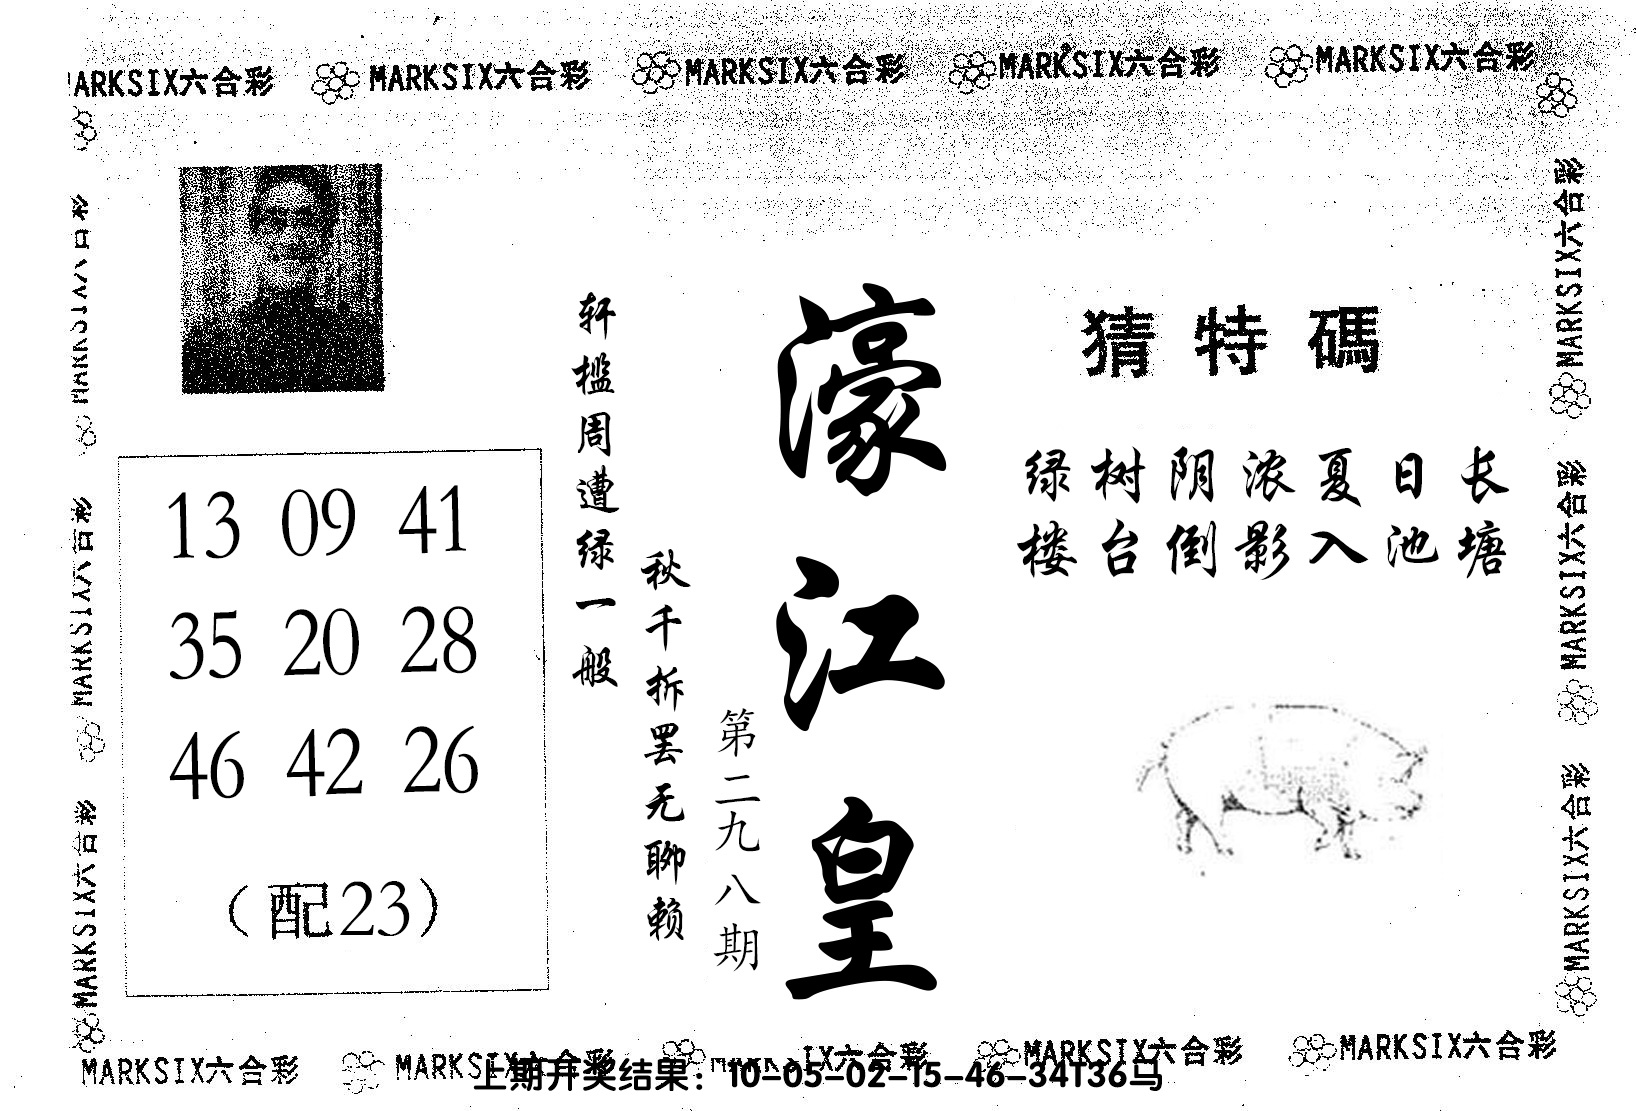 MARKSIX六合彩 MARKSIX六合彩 MARKSIX六合彩 MARKSIX六合彩
MARKSIX六合彩
MARKSIX六合彩
MARKSIX六合彩
MARKSIX六合彩
MARKSIX六合彩
猜特碼
绿树阴浓夏日长
楼台倒影入池塘
濠江皇
第二九八期
轩槛周遭绿一般
秋千拆罢无聊赖
13 09 41
35 20 28
46 42 26
（配23）
MARKSIX六合彩 MARKSIX六合彩 MARKSIX六合彩 MARKSIX六合彩
上期开奖结果：10-05-02-15-46-34T36马